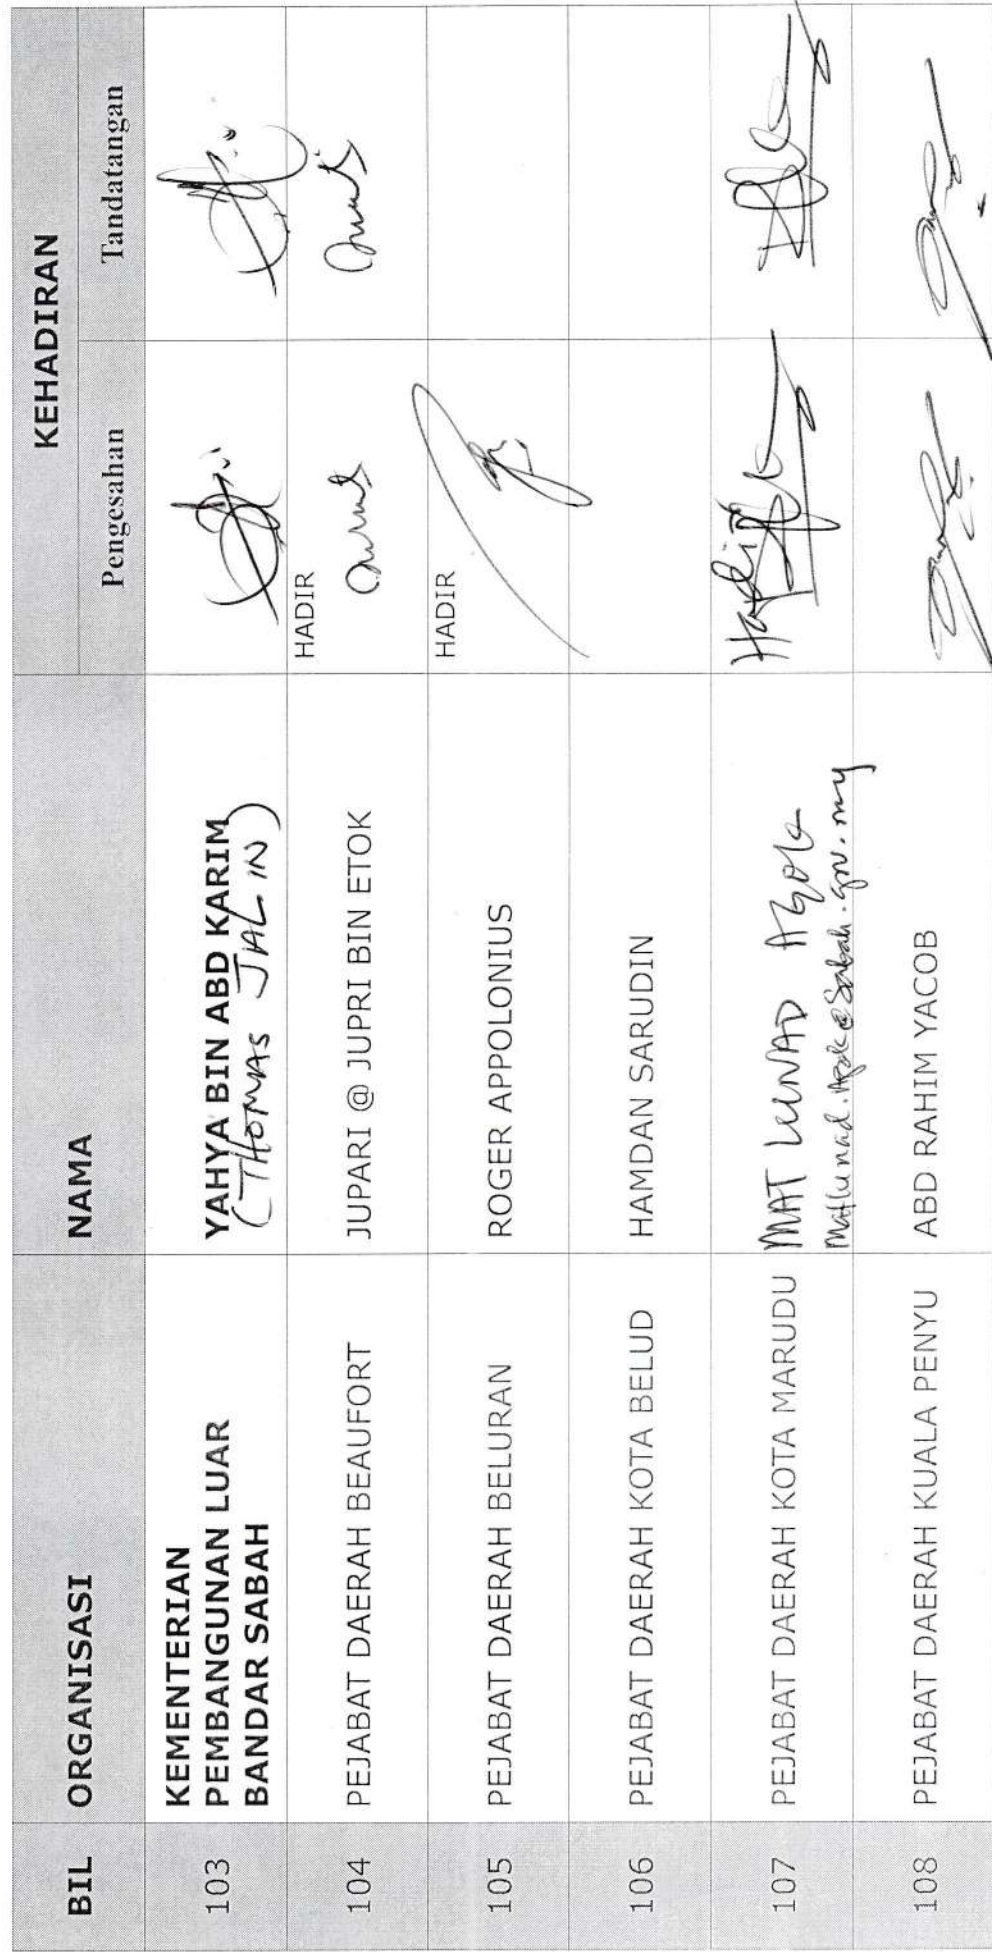 BIL ORGANISASI NAMA KEHADIRAN
Pengesahan Tandatangan
103 KEMENTERIAN
PEMBANGUNAN LUAR
BANDAR SABAH
YAHYA BIN ABD KARIM
(THOMAS JALIN)
104 PEJABAT DAERAH BEAUFORT JUPARI @ JUPRI BIN ETOK HADIR
105 PEJABAT DAERAH BELURAN ROGER APPOLONIUS HADIR
106 PEJABAT DAERAH KOTA BELUD HAMDAN SARUDIN
107 PEJABAT DAERAH KOTA MARUDU MAT LUNAD AGOK Hadir
matlunad.Agok@Sabah.gov.my
108 PEJABAT DAERAH KUALA PENYU ABD RAHIM YACOB